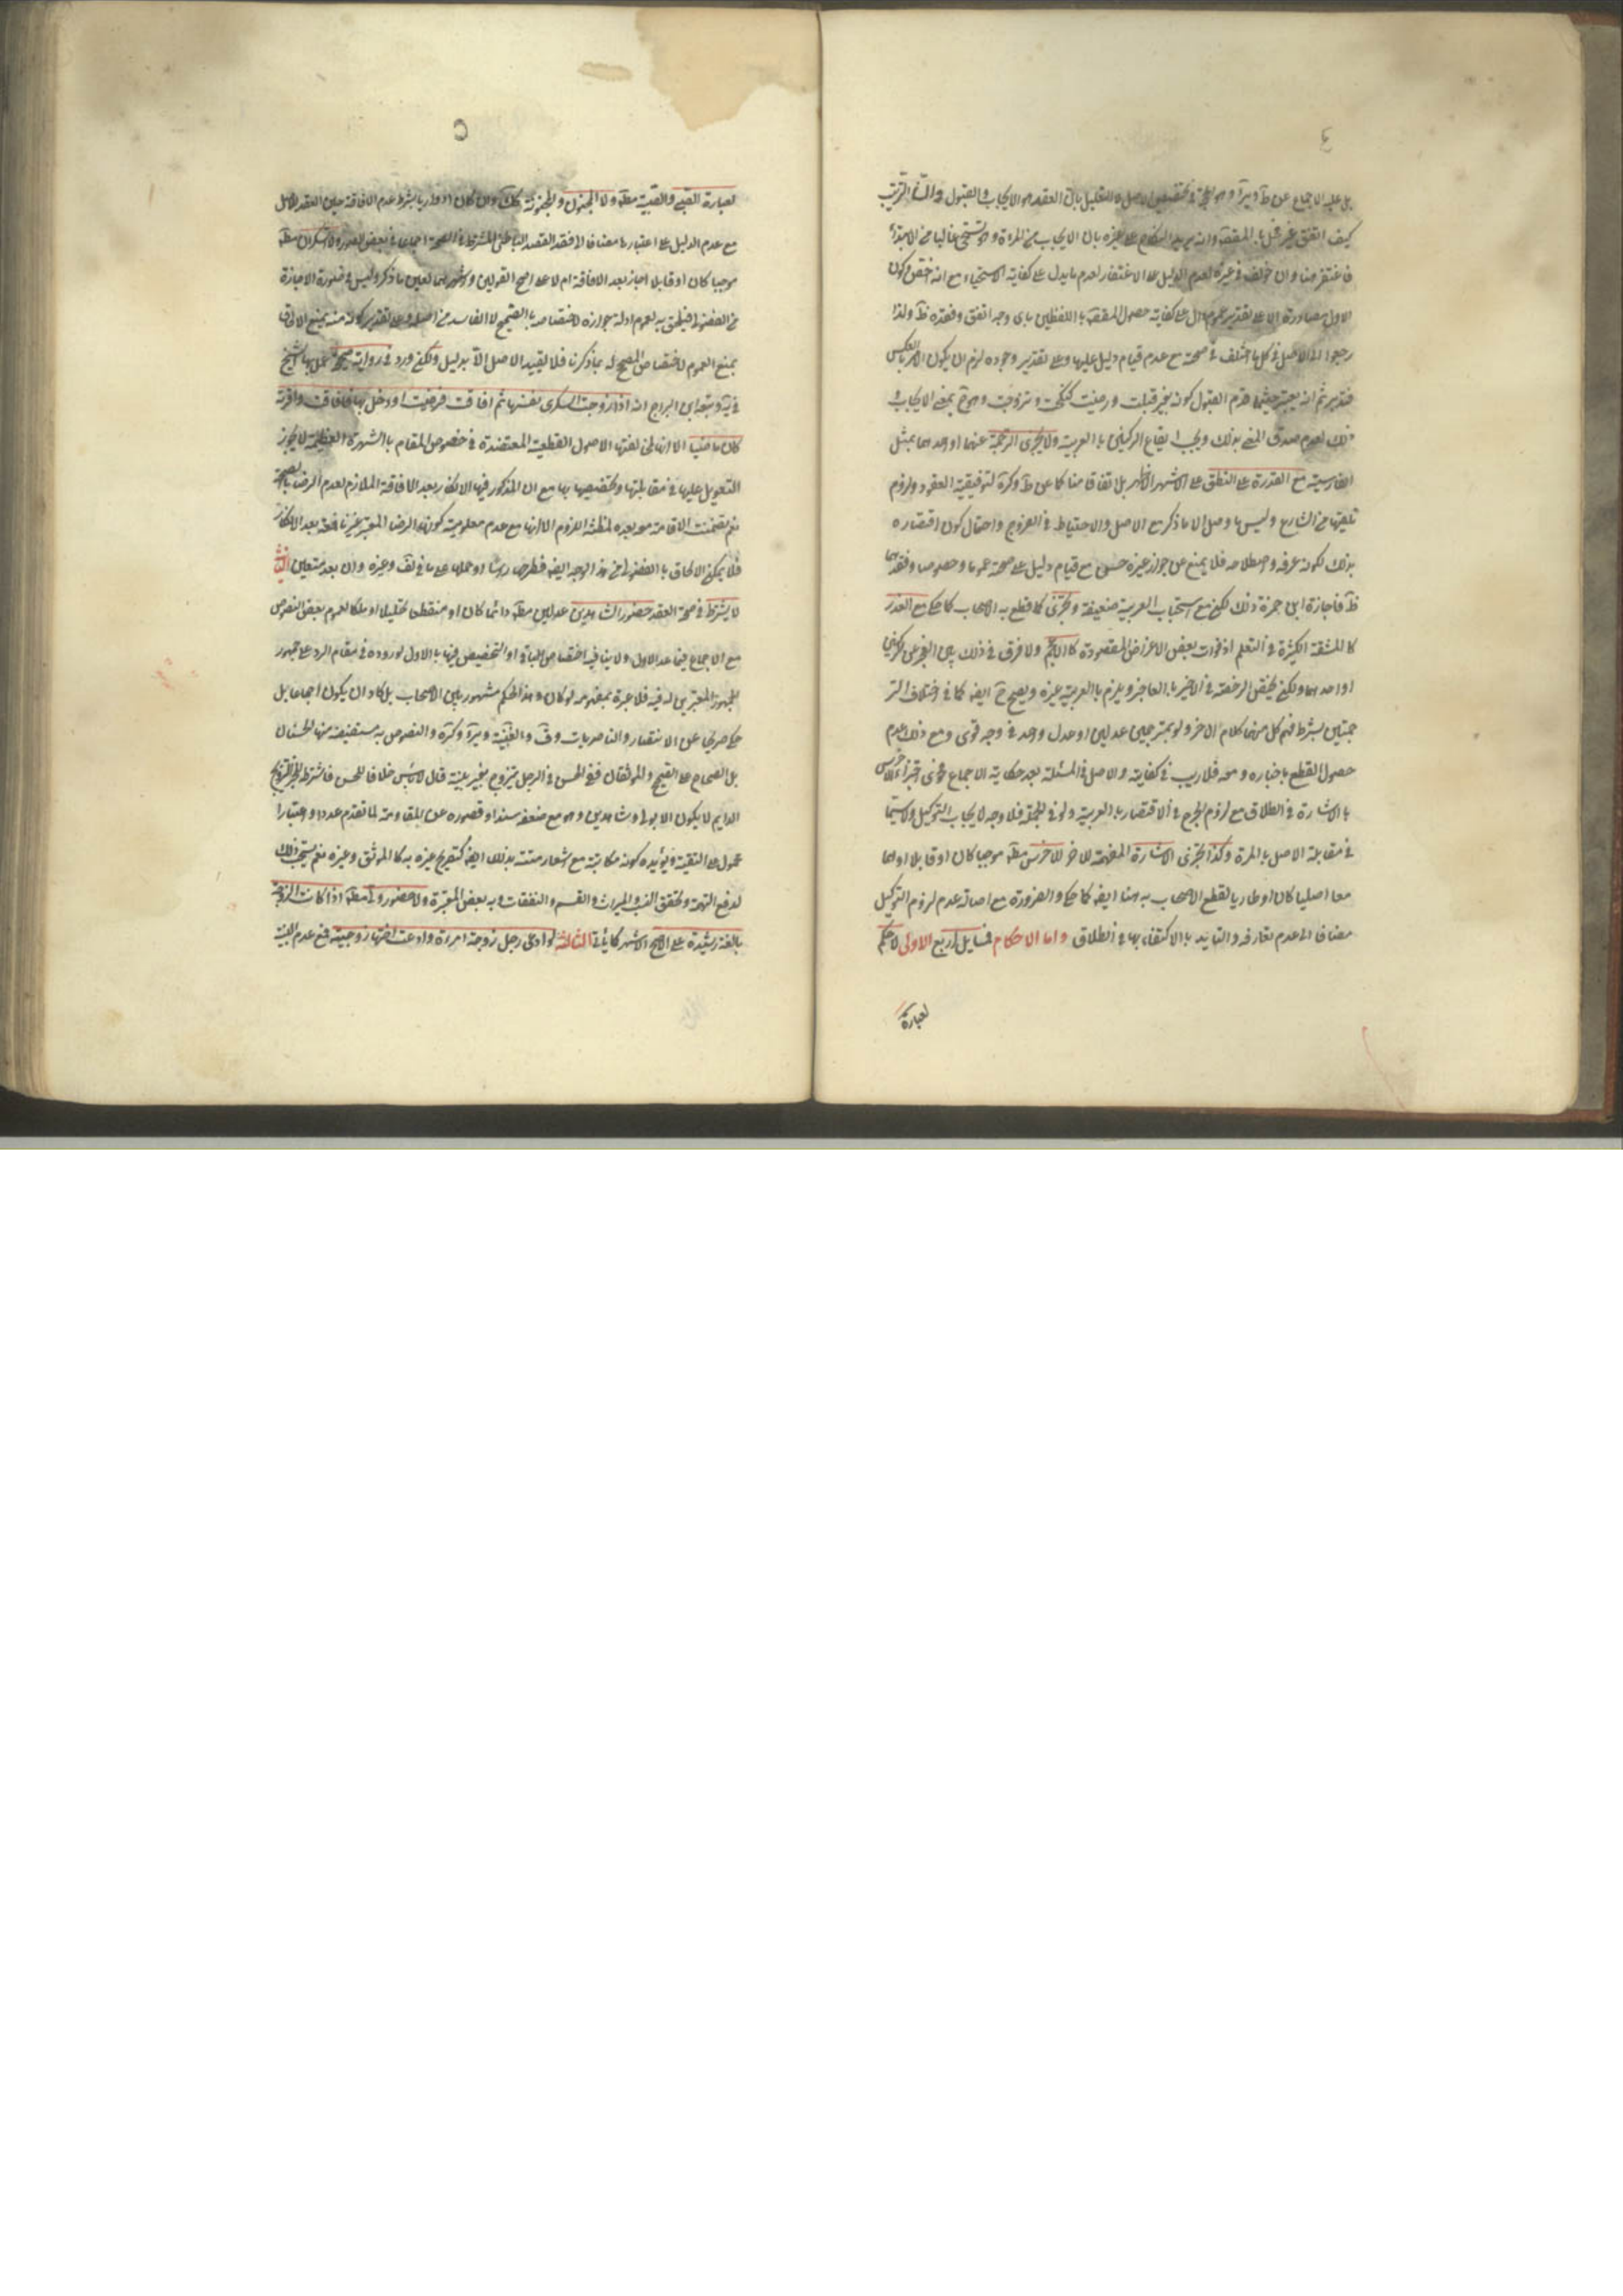 ٤
بل عليه الاجماع عن ط وير وهو الحجة في تخصيص الاصل لا التعليل بان العقد هو الايجاب والقبول والترتيب
كيف اتفق غير مخل بالمقصود
فاغتفر هنا وان خولف في غيره لعدم الدليل على الاغتفار لعدم ما يدل على كفاية الاستحياء مع انه اخص من كون
الاول مصادرة الا على تقدير عموم دال على كفاية حصول المقصود باللفظين باى وجه اتفق وفقده ظ ولذا
رجعوا الى الاصل في كل ما اختلف في صحته مع عدم قيام دليل عليها وعلى تقدير وجوده لزم ان يكون الامر بالعكس
فتدبر ثم انه يعتبر حيثما قدم القبول كونه بغير قبلت ورضيت كنكحت وتزوجت وهو ح بمعنى الايجاب و
ذلك لعدم صدق المعنى بذلك ويجب ايقاع الركنين بالعربية ولا يجزى الترجمة عنهما او احدهما بمثل
الفارسية مع القدرة على النطق على الاشهر الاظهر بل اتفاقا منا كما عن ط وكره لتوقيفية العقود ولزوم
تلقيها من الشارع وليس ما وصل الا ما ذكر مع الاصل والاحتياط في الفروج واحتمال كون اقتصاره
بذلك لكونه عرفه واصطلاحه فلا يمنع عن جواز غيره حسن مع قيام دليل على صحته عموما وخصوصا وفقدهما
ظ فاجازة ابن حمزة ذلك لكن مع استحباب العربية ضعيفة ويجزى كما قطع به الاصحاب كما حكى مع العذر
كالمشقة الكثيرة في التعلم او فوات بعض الاغراض المقصودة كالاعجم ولا فرق في ذلك بين العجز عن الركنين
او احدهما ولكن يختص الرخصة في الاخير بالعاجز ويلزم بالعربية غيره ويصح ح ايضا كما في اختلاف التر
جمتين بشرط فهم كل منهما كلام الاخر ولو بمترجمين عدلين او عدل واحد في وجه قوى ومع ذلك عدم
حصول القطع باخباره ومعه فلا ريب في كفايته والاصل في المسئلة بعد حكاية الاجماع فحوى اجزاء الاخرس
بالاشارة في الطلاق مع لزوم الحرج في الاقتصار بالعربية ولو في الجملة فلا وجه لايجاب التوكيل ولا سيما
في مقابلة الاصل بالمرة وكذا يجزى الاشارة المفهمة للاخر للاخرس مطلقا موجبا كان او قابلا او هما
معا اصليا كان او طاريا لقطع الاصحاب به هنا ايضا كما حكى والضرورة مع اصالة عدم لزوم التوكيل
مضافا الى عدم تعارفه والتاييد بالاكتفاء بها في الطلاق واما الاحكام فمسايل اربع الاولى لا حكم
لعبارة
٥
لعبارة الصبى والصبية مطلقا ولا المجنون والمجنونة كذلك وان كان ادواريا بشرط عدم الافاقة حين العقد للاصل
مع عدم الدليل على اعتبارها مضافا الى فقد القصد الباطنى المشترط في الصحة اجماعا في بعض الصور ولا السكران مطلقا
موجبا كان او قابلا اجاز بعد الافاقة ام لا على اصح القولين واشهرهما لعين ما ذكر وليس في صورة الاجازة
من الفضولى فيلحق به لعموم ادلة جوازه لاختصاصه بالصحيح لا الفاسد من اصله وعلى تقدير كونه منه يمنع الالحاق
بمنع العموم لاختصاص المصحح له بما ذكرنا فلا يقيد الاصل الا بدليل ولكن ورد في رواية صحيحة عمل بها الشيخ
في ية وتبعه ابن البراج انه اذا زوجت السكرى نفسها ثم افاقت فرضيت او دخل بها فافاقت واقرته
كان ماضيا الا انها لمخالفتها الاصول القطعية المعتضدة في خصوص المقام بالشهرة العظيمة لا يجوز
التعويل عليها في مقابلتها وتخصيصها بها مع ان المذكور فيها الانكار بعد الافاقة الملازم لعدم الرضا بالصحة
نعم تضمنت الاقامة معه بعده لمظنة اللزوم الا انها مع عدم معلومية كونها الرضا المعتبر غير نافعة بعد الانكار
فلا يمكن الالحاق بالفضولى من هذا الوجه ايضا فطرحها راسا او حملها على ما في لف وغيره وان بعد متعين الثانية
لا يشترط في صحة العقد حضور الشاهدين عدلين مطلقا دائما كان او منقطعا تحليلا او ملكا لعموم بعض النصوص
مع الاجماع فيما عدا الاول ولا ينافيه اختصاص الباقي او التخصيص فيها بالاول لوروده في مقام الرد على جمهور
الجمهور المعتبرين له فيه فلا عبرة بمفهومه لو كان وهذا الحكم مشهور بين الاصحاب بل كاد ان يكون اجماعا بل
حكى صريحا عن الانتصار والناصريات وف والغنية وير وكره والنصوص به مستفيضة منها الحسنان
بل الصحاح على الصحيح والموثقان ففى الحسن في الرجل يتزوج بغير بينة قال لا باس خلافا للحسن فاشترطه لخبر التزويج
الدايم لا يكون الا بولى وشاهدين وهو مع ضعفه سندا وقصوره عن المقاومة لما تقدم عددا واعتبارا
محمول على التقية ويؤيده كونه مكاتبة مع اشعار متنه بذلك ايضا كتصريح غيره به كالموثق وغيره نعم يستحب ذلك
لدفع التهمة وتحقق النسب والميراث والقسم والنفقات وبه بعض المعتبرة ولا حضور ولى مطلقا اذا كانت الزوجة
بالغة رشيدة على الاصح الاشهر كما ياتى الثالثة لو ادعى رجل زوجة امرءة وادعت اختها زوجيته فمع عدم البينة